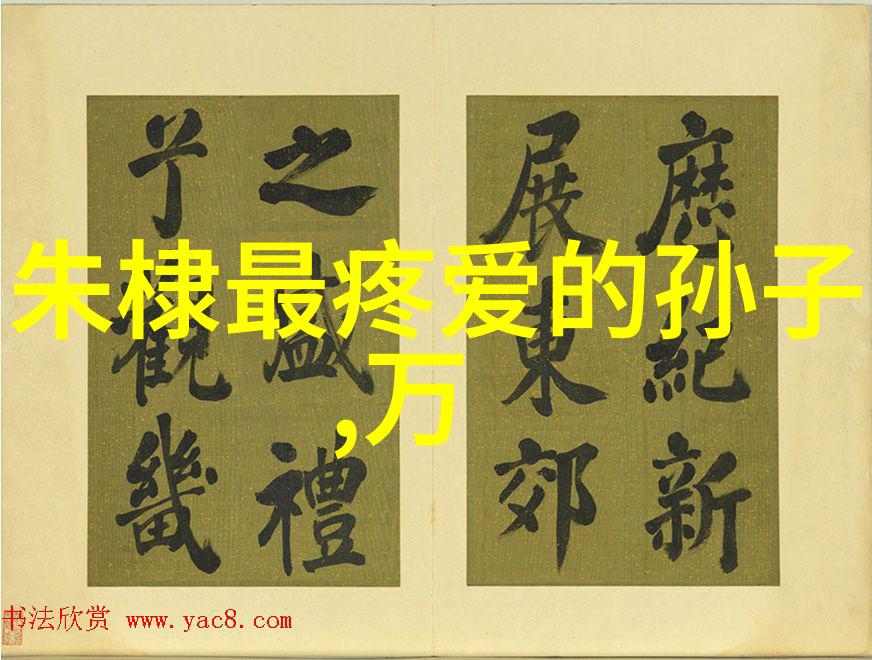 朱棣最疼爱的孙子
,万
歴紀新
展東郊
之盛禮
觀畿
书法欣赏 www.yac8.com